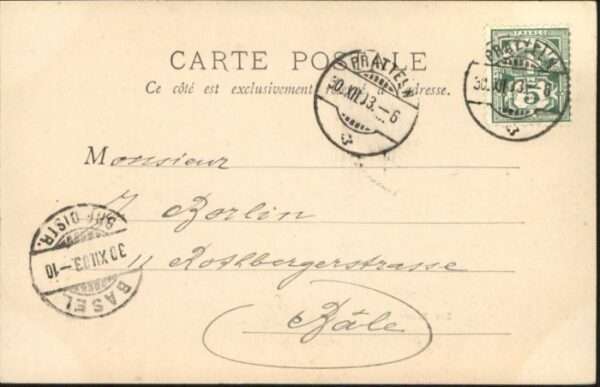 CARTE POSTALE
Ce côté est exclusivement réservé à l'adresse.
PRATTELN
30.XII.03.-6
FRANCO
PRATTELN
30.XII.03.-6
5
Monsieur
J. Borlin
11 Rothbergerstrasse
Bâle
BRF. DISTR.
30.XII.03.-10
BASEL